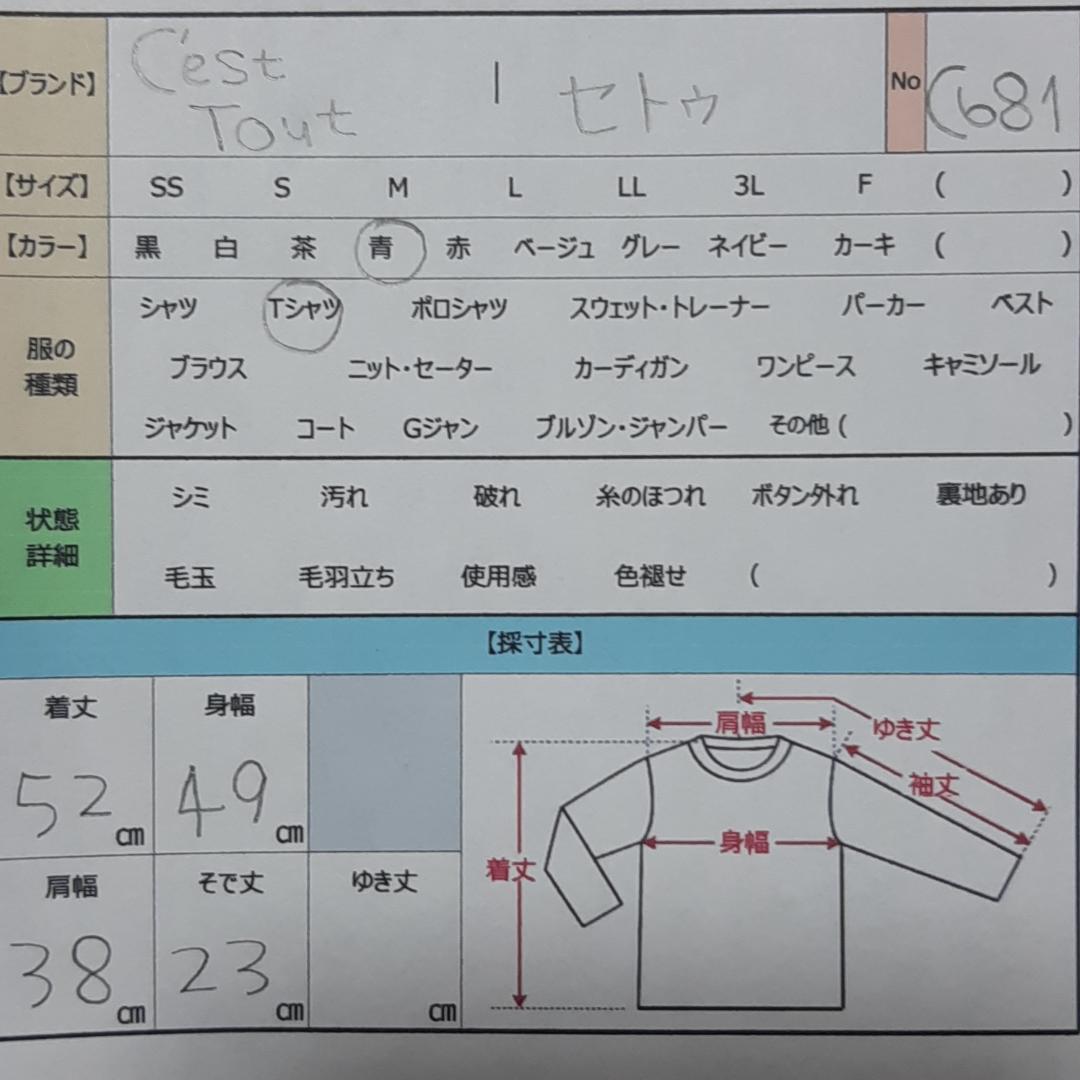 【ブランド】 C'est Tout | セトゥ No C681
【サイズ】 SS S M L LL 3L F ( )
【カラー】 黒 白 茶 青 赤 ベージュ グレー ネイビー カーキ ( )
服の種類
シャツ Tシャツ ポロシャツ スウェット・トレーナー パーカー ベスト
ブラウス ニット・セーター カーディガン ワンピース キャミソール
ジャケット コート Gジャン ブルゾン・ジャンパー その他 ( )
状態詳細
シミ 汚れ 破れ 糸のほつれ ボタン外れ 裏地あり
毛玉 毛羽立ち 使用感 色褪せ ( )
【採寸表】
着丈 身幅
52 cm 49 cm
肩幅 そで丈 ゆき丈
38 cm 23 cm cm
肩幅 ゆき丈
袖丈
身幅
着丈